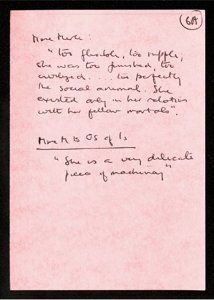 6A
More Merle:
"Too flexible, too supple,
she was too finished, too
civilized. . . . too perfectly
the social animal. She
existed only in her relations
with her fellow mortals".
More M is OS of Is
"She is a very delicate
piece of machinery"